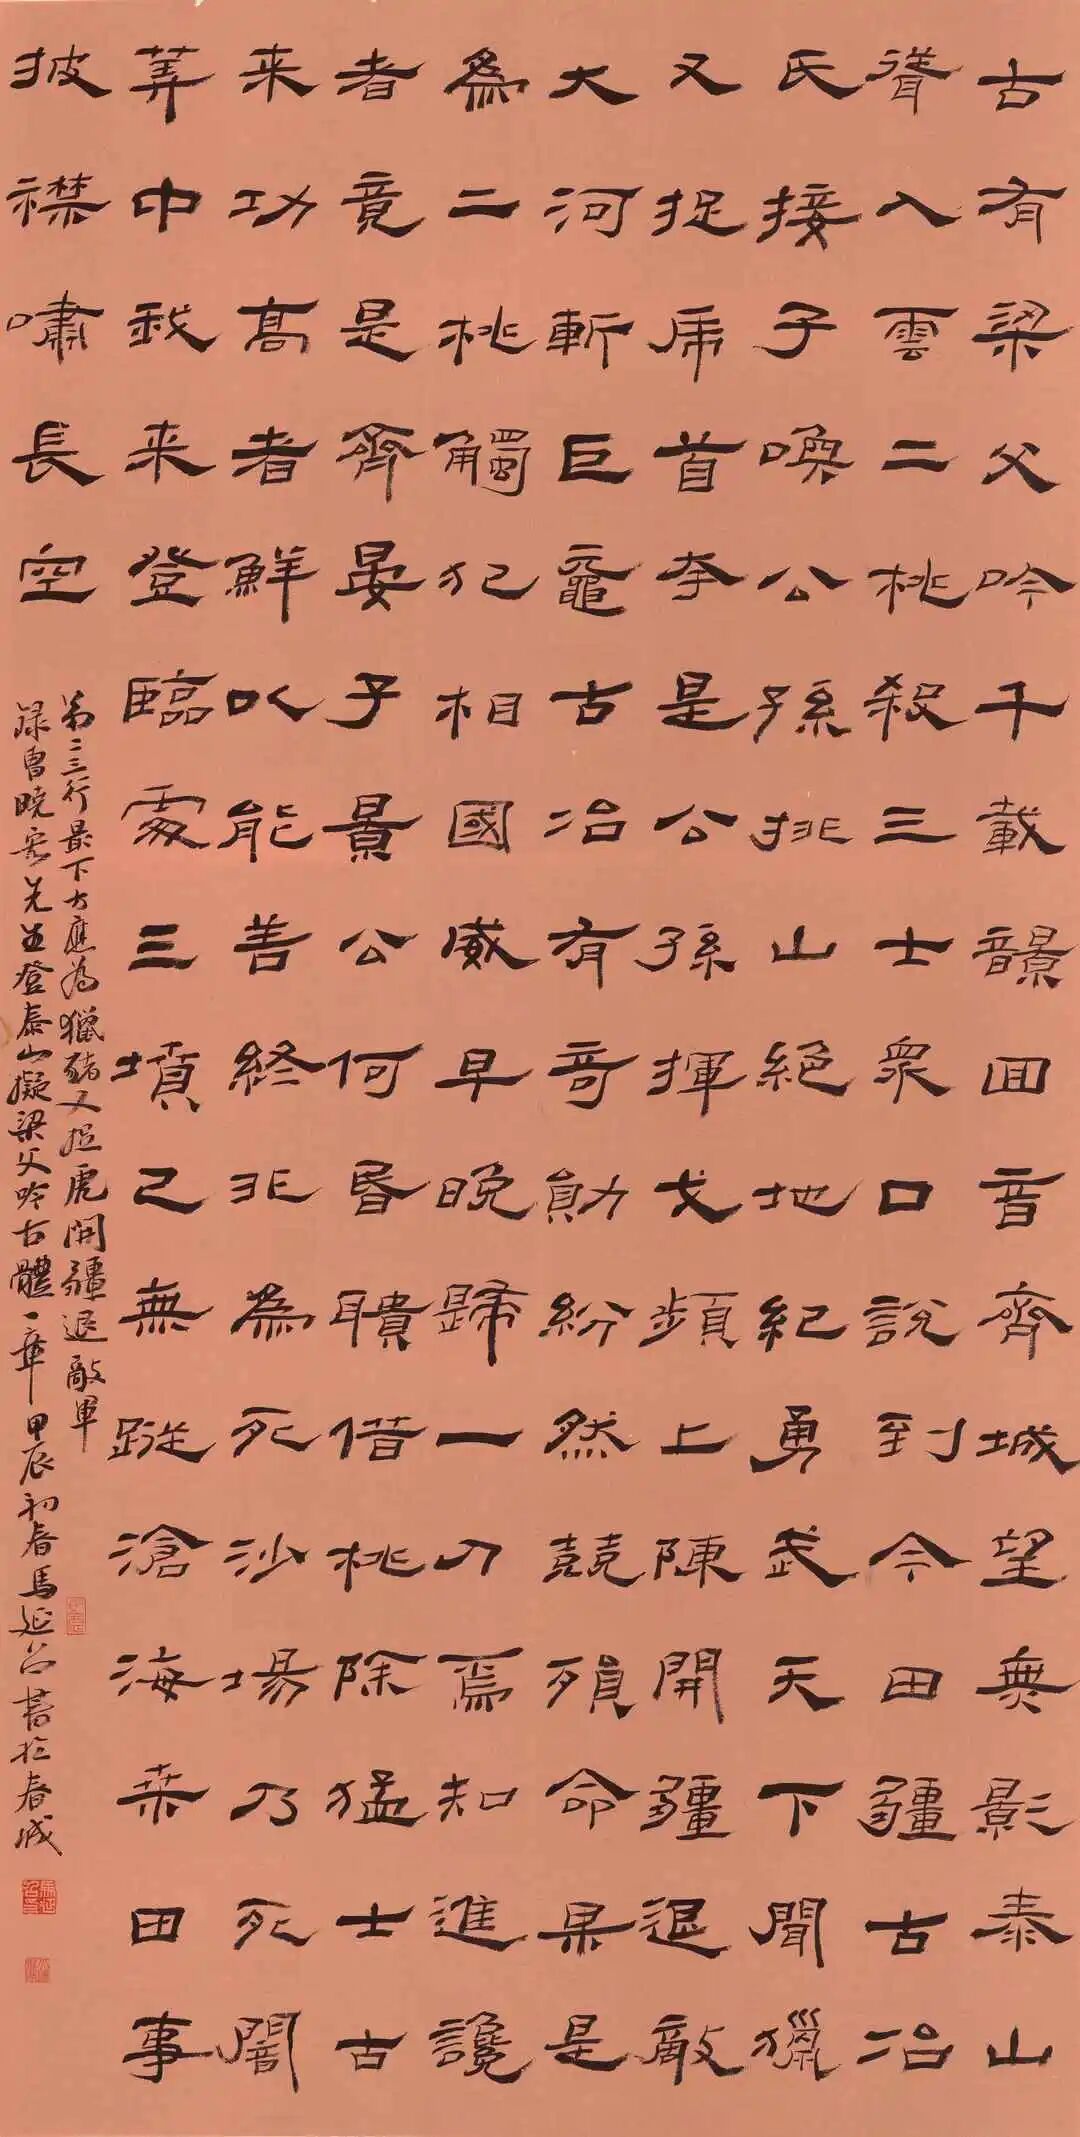 古有梁父吟千載韻回音齊城望無影泰山
聳入雲二桃殺三士眾口說到今田疆古冶
氏接子喚公孫挑山絕地紀勇武天下聞獵
又捉虎首夸是公孫揮戈頻上陳開疆退敵
大河斬巨黿古冶有奇勛紛然競殞命果是
為二桃觸犯相國威早晚歸一刀焉知進讒
者竟是齊晏子景公何昏聵借桃除猛士古
来功高者鮮以能善終非為死沙場乃死闇
筭中我来登臨處三墳已無蹤滄海桑田事
披襟嘯長空
第二三行最下方應為獵豬又捉虎開疆退敵軍
録曹曉宏先生登泰山擬梁父吟古體一章甲辰初春馬延書於春城